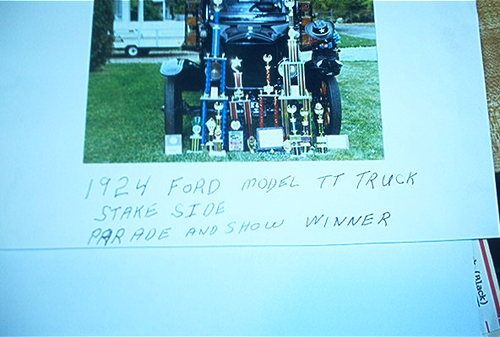 1924 FORD MODEL TT TRUCK
STAKE SIDE
PARADE AND SHOW WINNER
(Black)